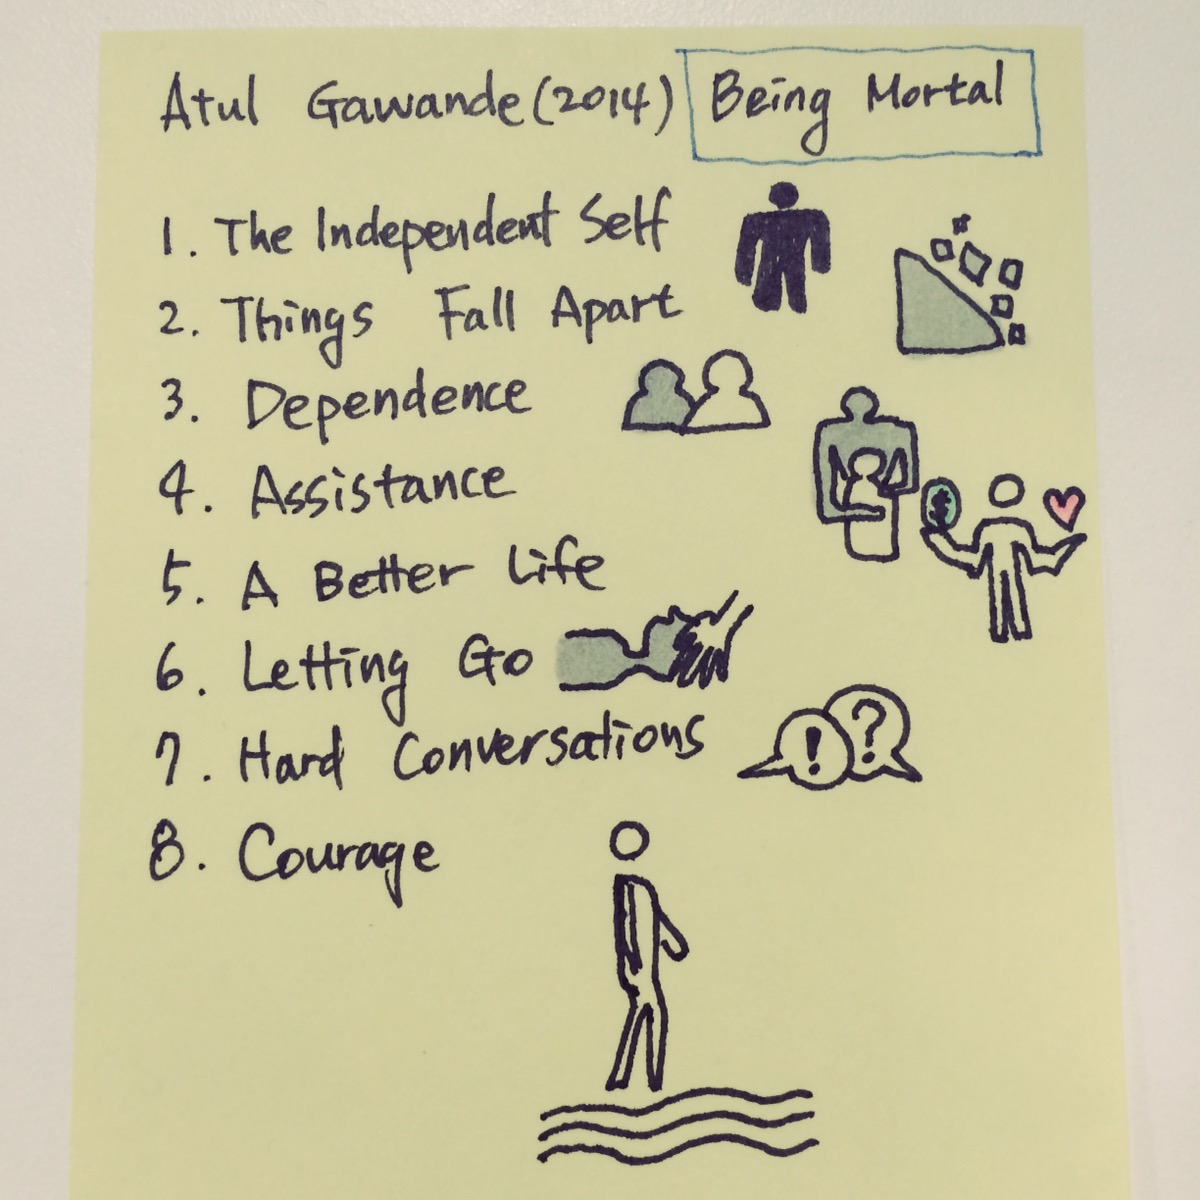 Atul Gawande (2014) Being Mortal
1. The Independent Self
2. Things Fall Apart
3. Dependence
4. Assistance
$
5. A Better Life
6. Letting Go
7. Hard Conversations
! ?
8. Courage